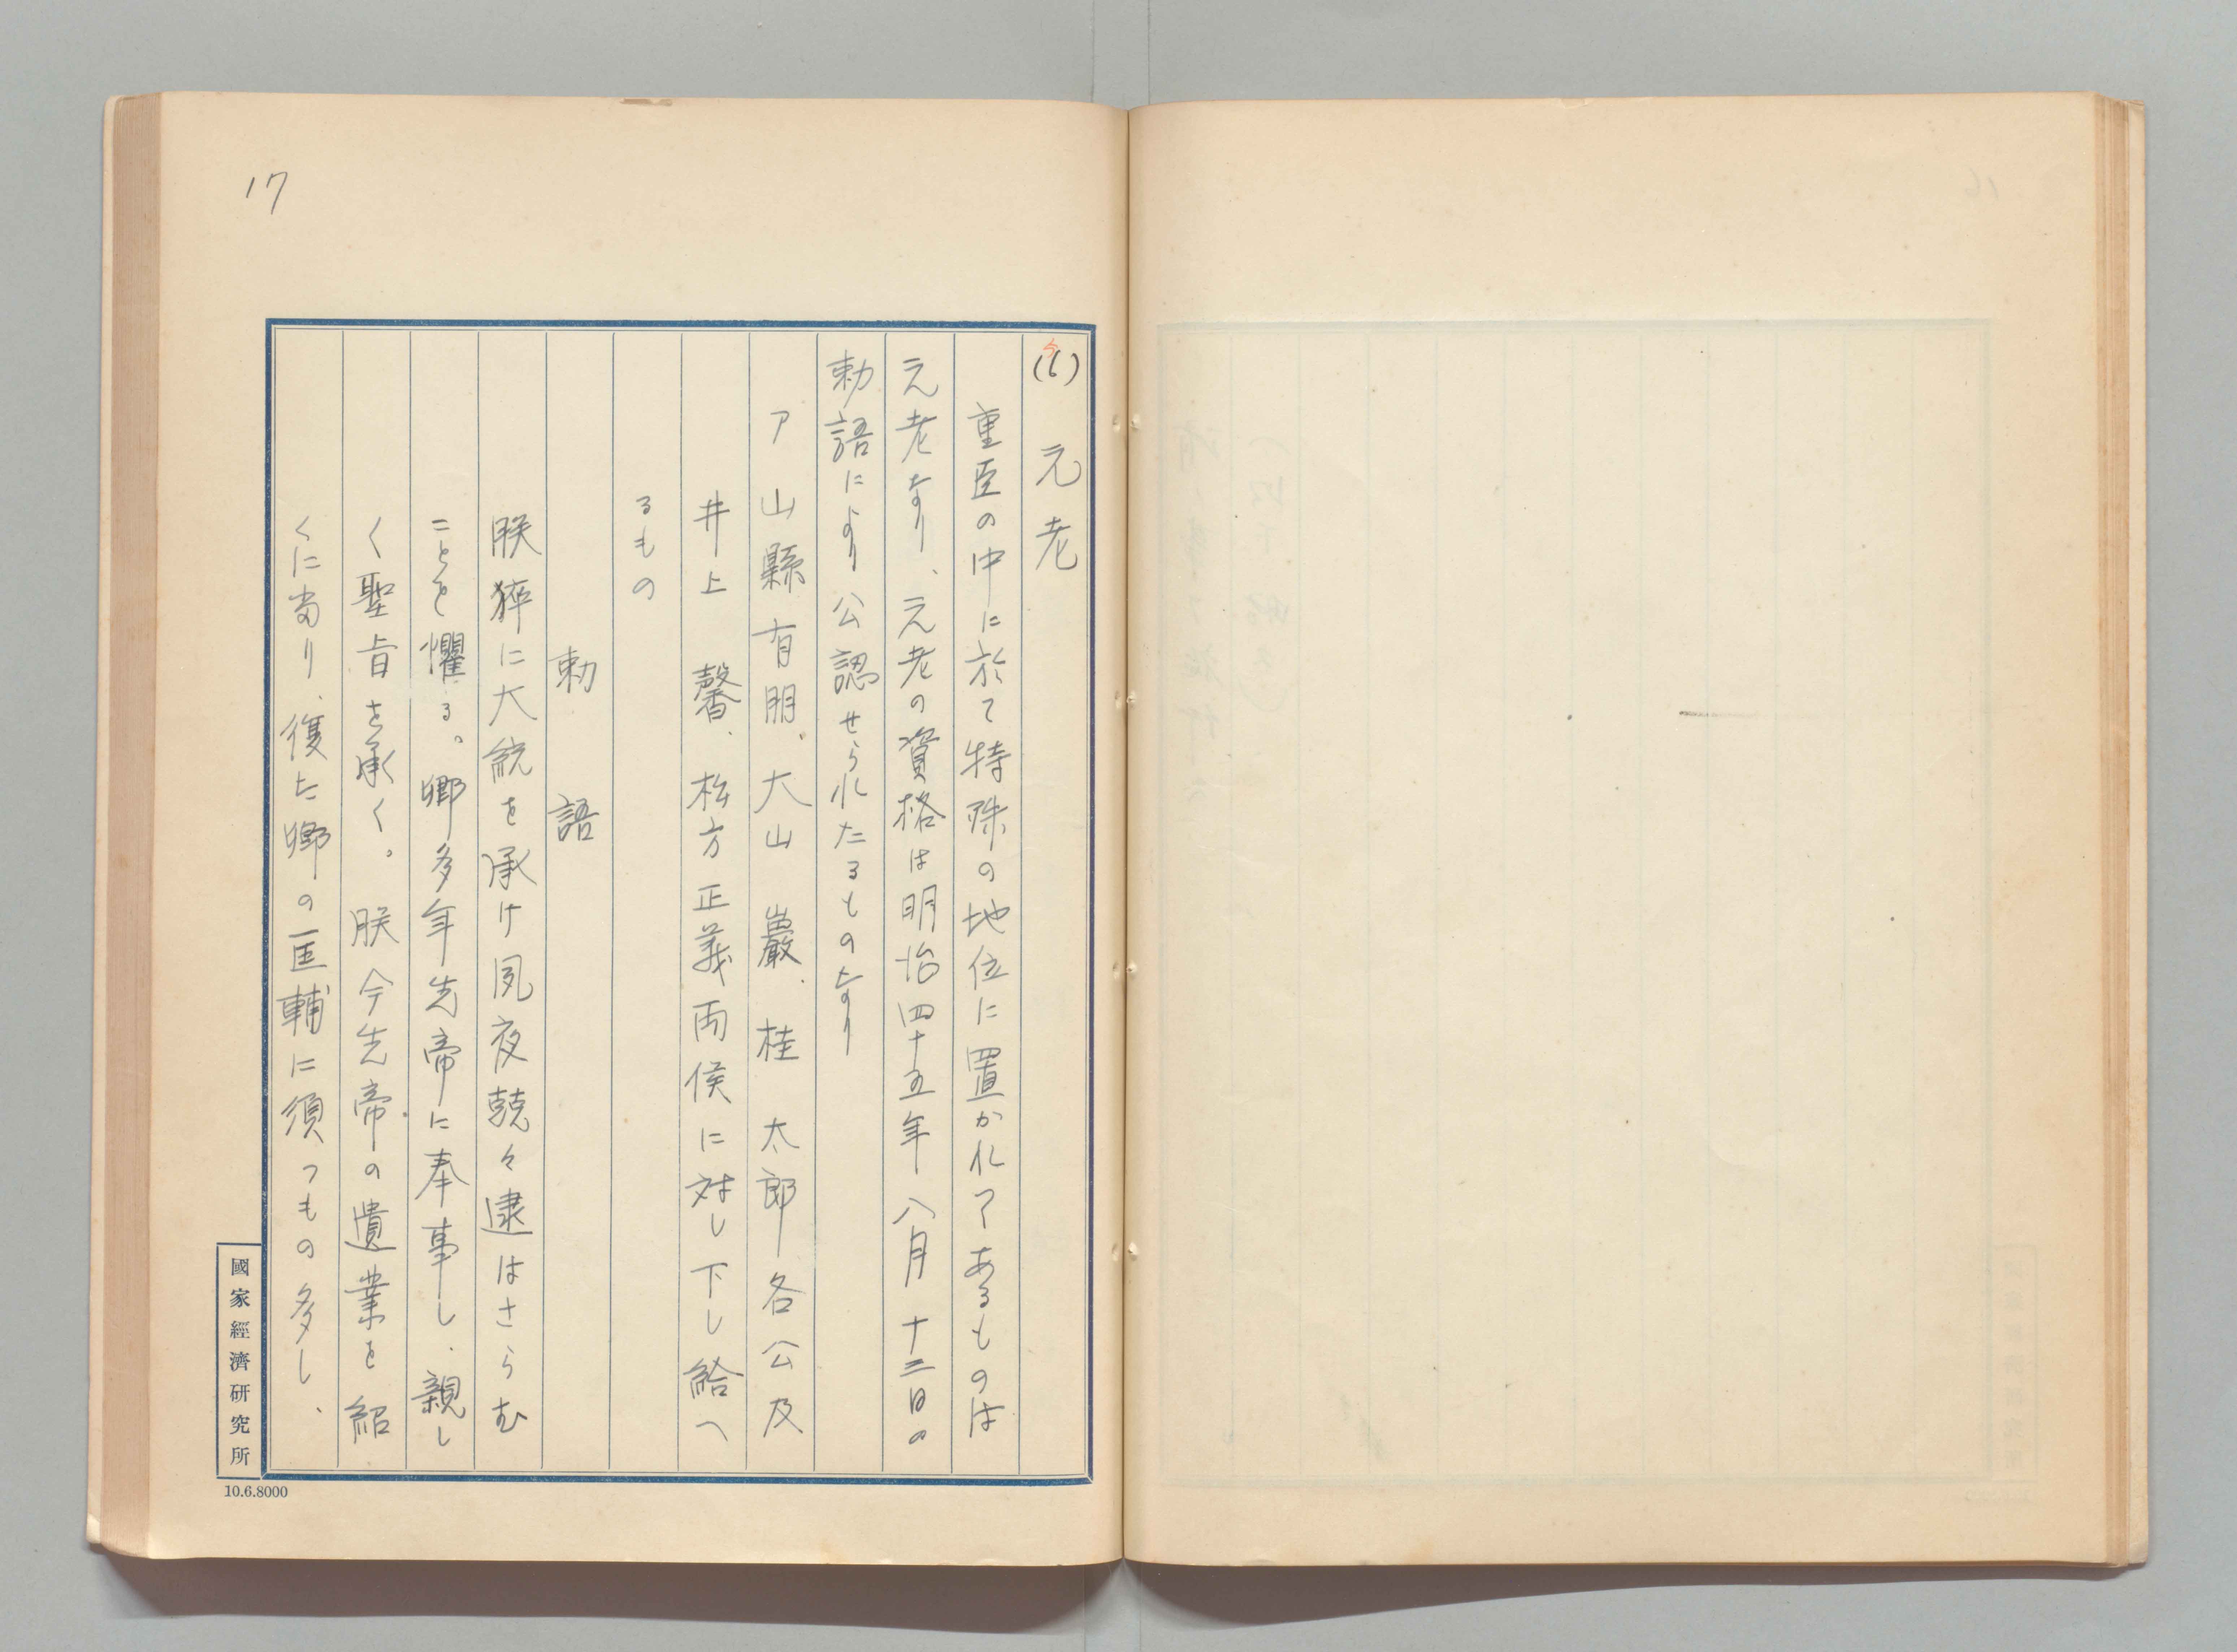 17
(6) 元老
重臣の中に於て特殊の地位に置かれてあるものは
元老なり、元老の資格は明治四十五年八月十三日の
勅語により公認せられたるものなり
ア 山縣有朋、大山巖、桂太郎各公及
井上馨、松方正義両侯に対し下し給へ
るもの
勅語
朕猝に大統を承け夙夜兢々逮はさらむ
ことを懼る。卿多年先帝に奉事し、親し
く聖旨を承く。朕今先帝の遺業を紹
くに当り、復た卿の匡輔に須つもの多し、
國家經濟研究所
10.6.8000